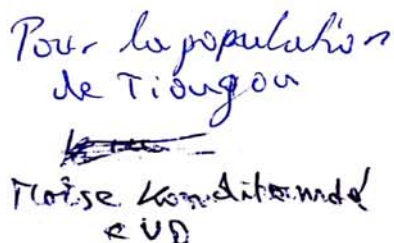 Pour la population
de Tiougou
Moïse Konditamdé
CVD